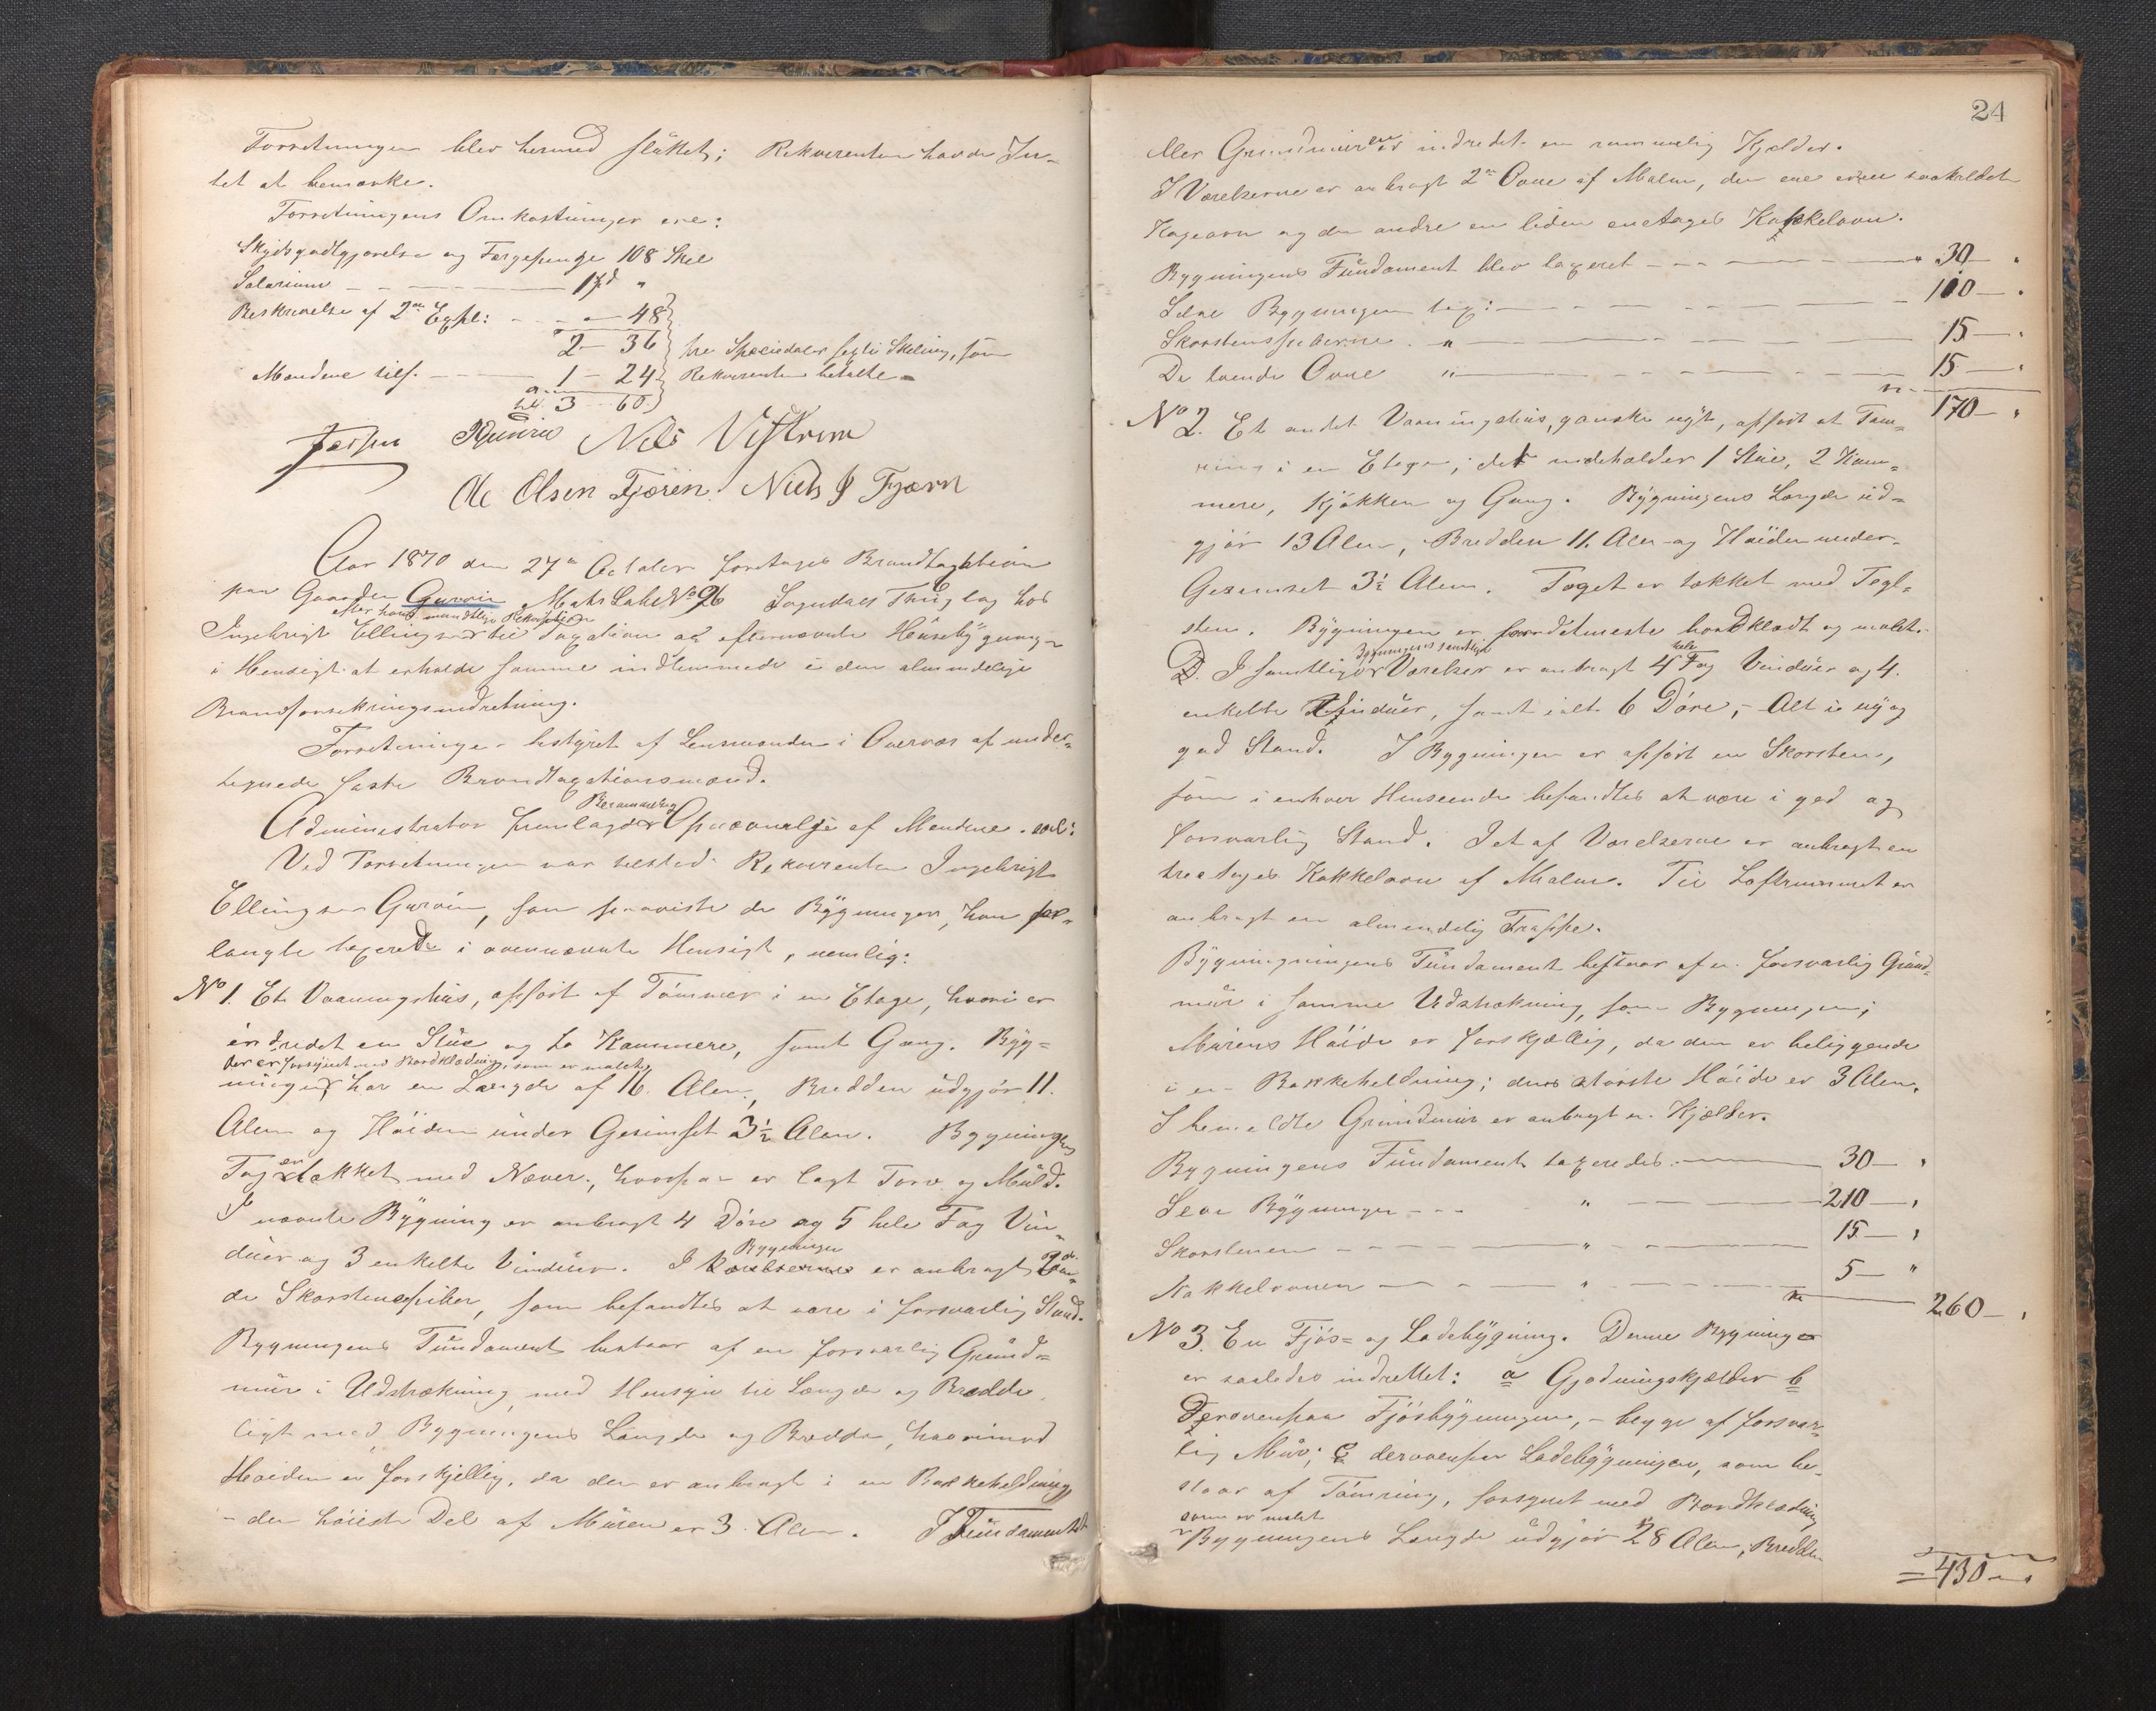 Forretningen blev hermed sluttet; Rekvirenten havde In-
tet at bemærke.
Forretningens Omkostninger ere:
Skydsgodtgjørelse og Færgepenge 108 Skel
Salarium - - - 1 Spd "
Beskrivelse af 2de Expl: - - - 48
2 - 36
tre Speciedaler sexti Skilling, som
Mændene tils. - - - 1 - 24
Rekvirenten betalte -
3 - 60
Nils Vestrem
Ole Olsen Fjæren. Niels J Fjærn
Aar 1870 den 27de October foretoges Brandtaxation
paa Gaarden Gurvin Matr Løbe No 96 Sogndals Thinglag hos
efter hans mundtlige Rekvisition
Ingebrigt Ellingsen til Taxation af efternævnte Huusebygninger
i Hensigt at erholde samme indlemmede i den almindelige
Brandforsikringsindretning.
Forretningen bestyret af Lensmanden i Overvær af under-
tegnede faste Brandtaxationsmænd.
Berammelse
Administrator fremlagde Opnævnelse af Mændene.
Ved Forretningen var tilstede Rekvirenten Ingebrigt
Ellingsen Gurvin, som paaviste de Bygninger, han for-
langte taxerede i ovennævnte Hensigt, nemlig:
No 1. Et Vaaningshus, opført af Tømmer i en Etage, hvori er
indredet en Stue og to Kammere, samt Gang. Byg-
der er forsynet med Bordklædning, som er malet
ningen har en Længde af 16 Alen, Bredden udgjør 11.
Alen og Høiden under Gesimset 3½ Alen. Bygningens
Tag er tækket med Næver, hvorpaa er lagt Torv og Muld.
I nævnte Bygning er anbragt 4 Døre og 5 hele Fag Vin-
Bygningen
duer og 3 enkelte Vinduer. I Værelserne er anbragt tven-
de Skorstenspiber, som befandtes at være i forsvarlig Stand.
Bygningens Fundament bestaar af en forsvarlig Grund-
mur i Udstrækning med Hensyn til Længde og Bredde
ligt med Bygningens Længde og Bredde, hvorimod
Høiden er forskjellig, da den er anbragt i en Bakkeheldning
- den høieste Del af Muren er 3 Alen. I Fundamentet
24
eller Grundmuren er indredet en rummelig Kjelder.
I Værelserne er anbragt 2de Ovne af Malm, den ene er en saakaldet
Kogeovn og den andre en liden enetages Kakkelovn.
Bygningens Fundament blev taxeret - - - 30 - "
Selve Bygningen tax: - - - 100 - "
Skorstenspiberne " - - - 15 - "
De tvende Ovne " - - - 15 - "
170 - "
No 2. Et andet Vaaningshus, ganske nyt, opført af Tøm-
ring i en Etage; det indeholder 1 Stue, 2 Kam-
mere, Kjøkken og Gang. Bygningens Længde ud-
gjør 13 Alen, Bredden 11. Alen og Høiden under
Gesimset 3½ Alen. Taget er tækket med Tegl-
sten. Bygningen er fordetmeste bordklædt og malet.
Bygningens samtlige hele
I samtlige Værelser er anbragt 4 Fag Vinduer og 4.
enkelte Vinduer, samt ialt 6 Døre, - Alt i ny og
god Stand. I Bygningen er opført en Skorsten,
som i enhver Henseende befandtes at være i god og
forsvarlig Stand. I et af Værelserne er anbragt en
treetages Kakkelovn af Malm. Til Loftrummet er
anbragt en almindelig Trappe.
Bygningningens Fundament bestaar af en forsvarlig Grund-
mur i samme Udstrækning, som Bygningen;
Murens Høide er forskjællig, da den er beliggende
i en Bakkeheldning; dens største Høide er 3 Alen.
I bemeldte Grundmur er anbragt en Kjælder.
Bygningens Fundament taxeredes - - - 30 - "
Selve Bygningen - - - " - - - 210 - "
Skorstenen - - - " - - - 15 - "
Kakkelovnen - - - " - - - 5 - "
260 - "
No 3. En Fjøs- og Ladebygning. Denne Bygning
er saaledes indrettet: a Gjødningskjælder b
Derovenpaa Fjøsbygningen, - begge af forsvar-
lig Mur; c derovenpaa Ladebygningen, som be-
staar af Tømring, forsynet med Bordklædning
som er malet
Bygningens Længde udgjør 28 Alen, Bredden
= 430 - "